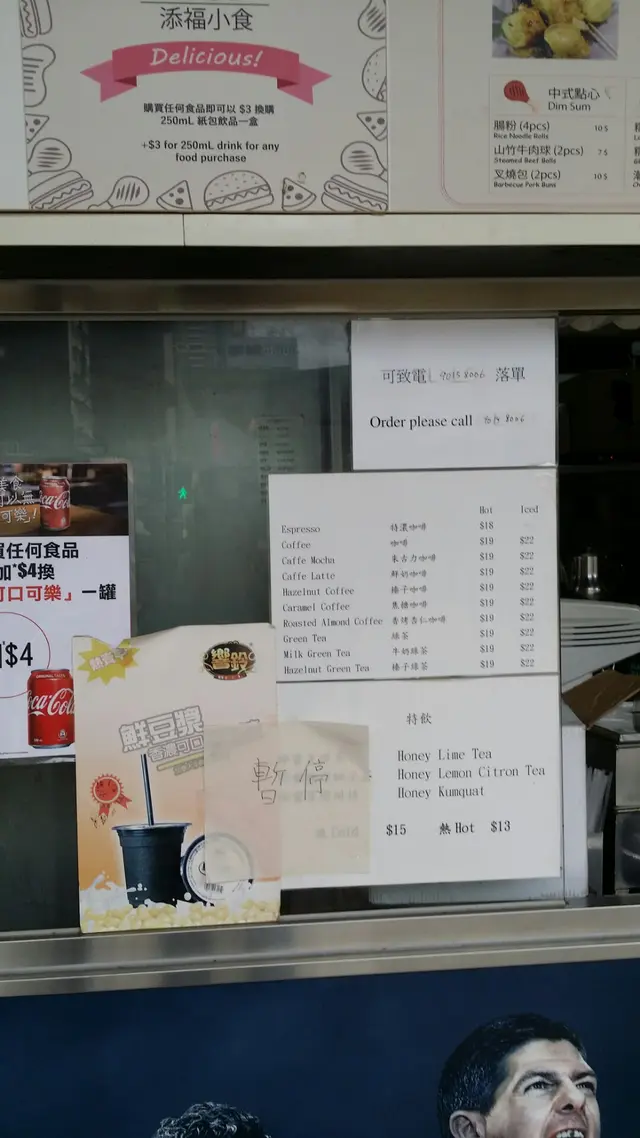 添福小食
Delicious!
購買任何食品即可以 $3 換購
250mL 紙包飲品一盒
+$3 for 250mL drink for any
food purchase
中式點心
Dim Sum
腸粉 (4pcs) 10$
Rice Noodle Rolls
山竹牛肉球 (2pcs) 7$
Steamed Beef Balls
叉燒包 (2pcs) 10$
Barbecue Pork Buns
可致電 落單
Order please call
Hot Iced
Espresso 特濃咖啡 $18
Coffee 咖啡 $19 $22
Caffe Mocha 朱古力咖啡 $19 $22
Caffe Latte 鮮奶咖啡 $19 $22
Hazelnut Coffee 榛子咖啡 $19 $22
Caramel Coffee 焦糖咖啡 $19 $22
Roasted Almond Coffee 香烤杏仁咖啡 $19 $22
Green Tea 綠茶 $19 $22
Milk Green Tea 牛奶綠茶 $19 $22
Hazelnut Green Tea 榛子綠茶 $19 $22
特飲
Honey Lime Tea
Honey Lemon Citron Tea
Honey Kumquat
$15 熱 Hot $13
美食
可樂!
Coca-Cola
任何食品
加$4換
可口可樂』一罐
$4
Coca-Cola
鮮豆漿
香濃可口
暫停